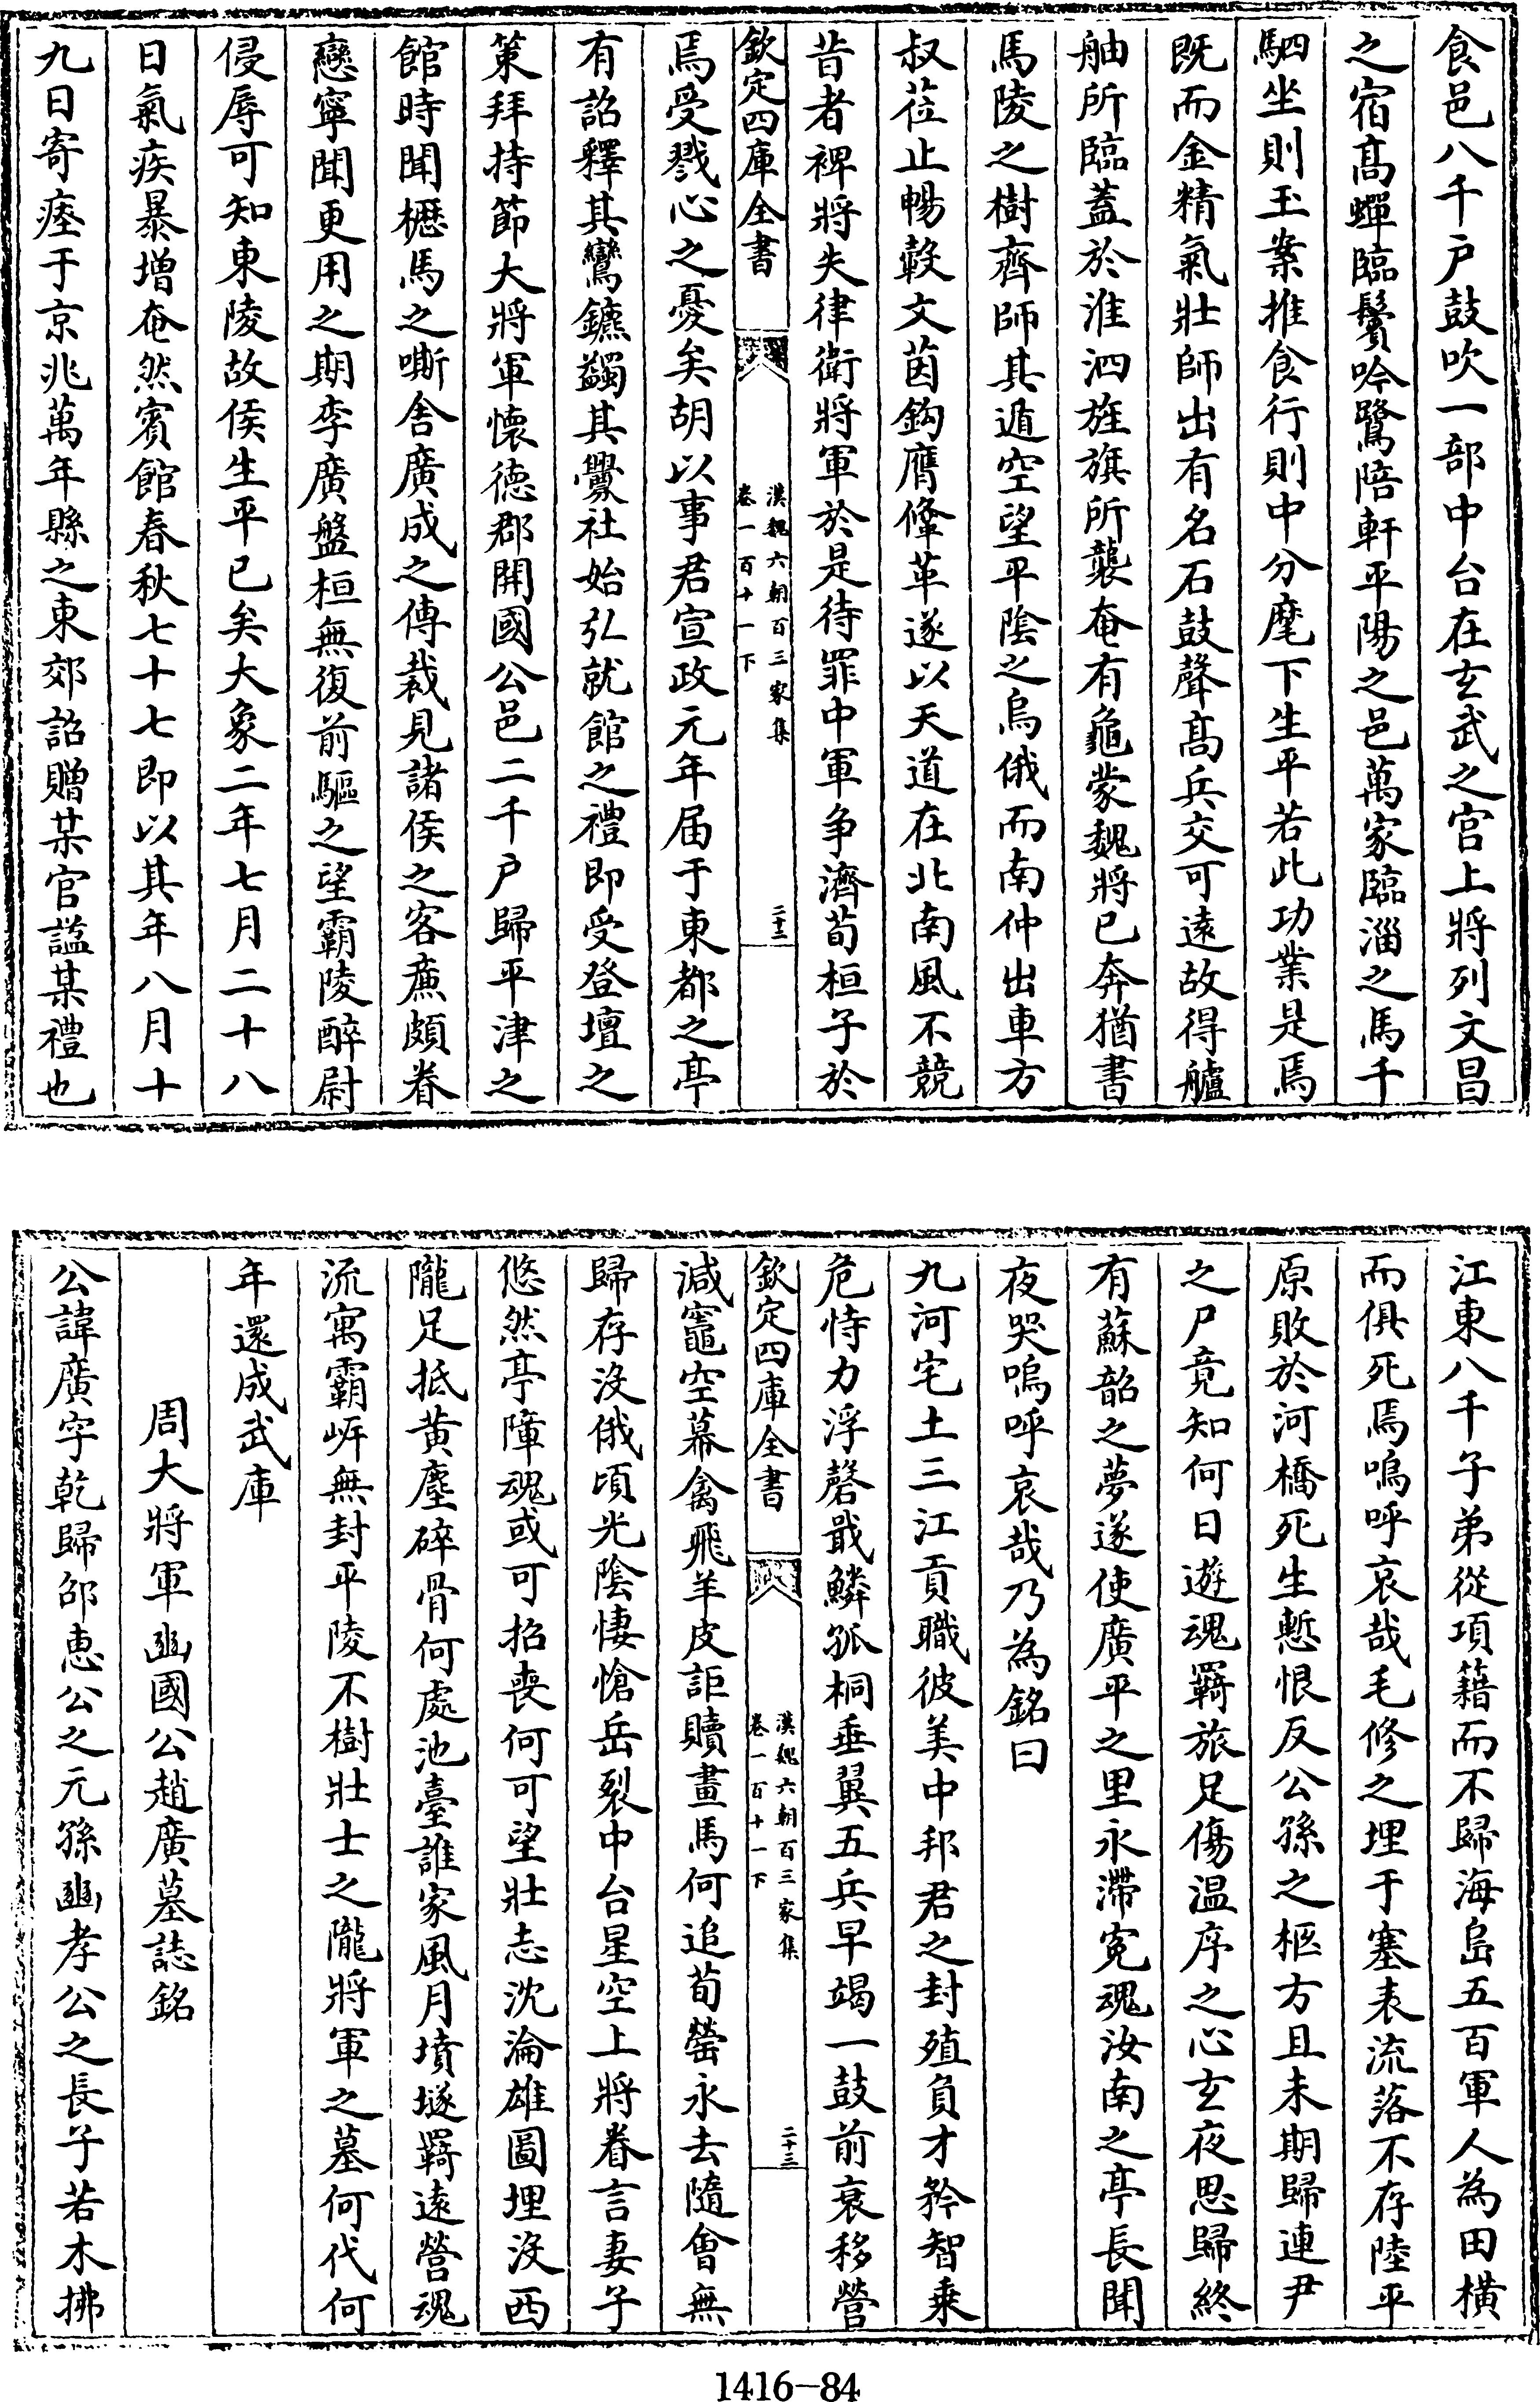 食邑八千户鼓吹一部中台在玄武之宫上將列文昌
之宿髙蟬臨鬢吟鷺陪軒平陽之邑萬家臨淄之馬千
駟坐則玉案推食行則中分麾下生平若此功業是焉
既而金精氣壯師出有名石鼓聲髙兵交可遠故得艫
舳所臨蓋於淮泗旌旗所襲奄有龜蒙魏將已奔猶書
馬陵之樹齊師其遁空望平陰之烏俄而南仲出車方
叔莅止暢轂文茵鈎膺鞗革遂以天道在北南風不競
昔者裨將失律衛將軍於是待罪中軍争濟荀桓子於
欽定四庫全書
漢魏六朝百三家集
卷一百十一下
二十二
焉受戮心之憂矣胡以事君宣政元年届于東都之亭
有詔釋其鸞鑣蠲其釁社始弘就館之禮即受登壇之
策拜持節大將軍懷徳郡開國公邑二千户歸平津之
館時聞櫪馬之嘶舍廣成之傳裁見諸侯之客廉頗眷
戀寧聞更用之期李廣盤桓無復前驅之望霸陵醉尉
侵辱可知東陵故侯生平已矣大象二年七月二十八
日氣疾暴増奄然賓館春秋七十七即以其年八月十
九日寄瘞于京兆萬年縣之東郊詔贈某官諡某禮也
江東八千子弟從項籍而不歸海島五百軍人為田橫
而俱死焉嗚呼哀哉毛修之埋于塞表流落不存陸平
原敗於河橋死生慙恨反公孫之柩方且未期歸連尹
之尸竟知何日遊魂羇旅足傷温序之心玄夜思歸終
有蘇韶之夢遂使廣平之里永滯寃魂汝南之亭長聞
夜哭嗚呼哀哉乃為銘曰
九河宅土三江貢職彼美中邦君之封殖負才矜智乗
危恃力浮磬戢鱗孤桐垂翼五兵早竭一鼓前衰移營
欽定四庫全書
漢魏六朝百三家集
卷一百十一下
二十三
減竈空幕禽飛羊皮詎贖畫馬何追荀罃永去隨會無
歸存没俄頃光陰悽愴岳裂中台星空上將眷言妻子
悠然亭障魂或可招喪何可望壯志沈淪雄圖埋没西
隴足抵黄塵碎骨何處池臺誰家風月墳墜羇遠營魂
流寓霸岍無封平陵不樹壯士之隴將軍之墓何代何
年還成武庫
周大將軍豳國公趙廣墓誌銘
公諱廣字乾歸邵惠公之元孫豳孝公之長子若木拂
1416-84